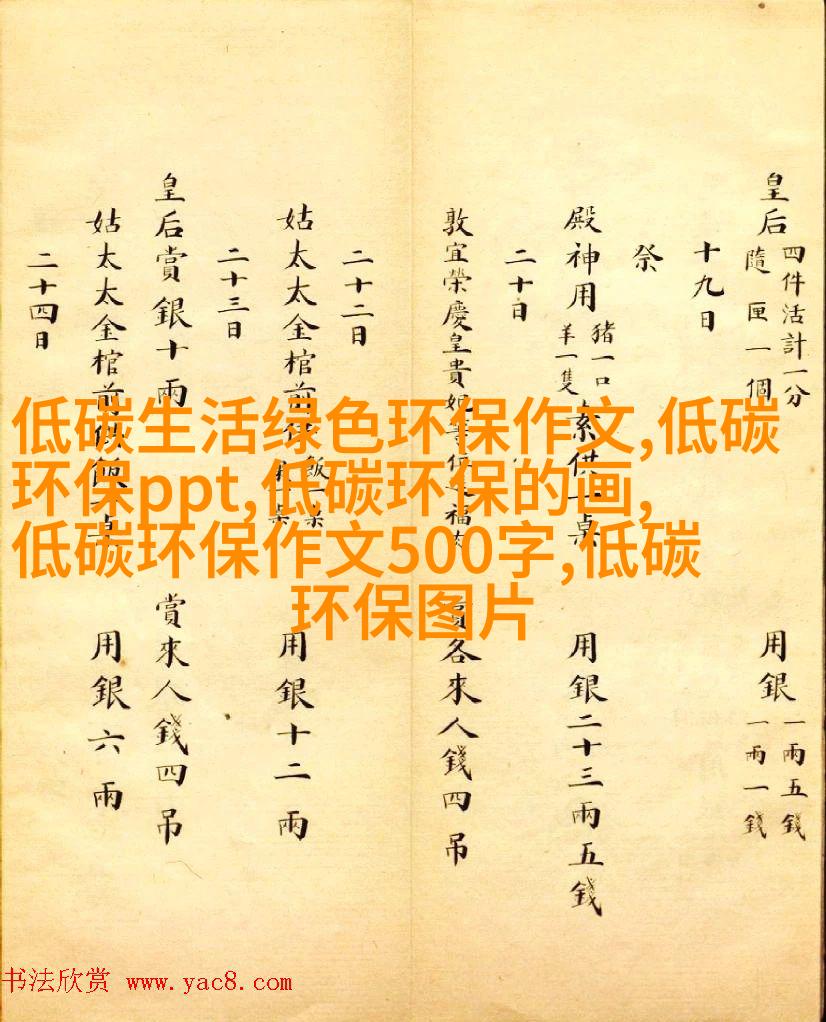 皇后
四件活計一分
隨匣一個
用銀
一兩五錢
一兩一錢
十九日
祭
殿神用
豬一口
羊一隻
素供一桌
用銀二十三兩五錢
二十日
敦宜榮慶皇貴妃
福肉
賞各來人錢四吊
二十二日
姑太太金棺前供
飯一桌
用銀十二兩
二十三日
皇后賞銀十兩
賞來人錢四吊
姑太太金棺前供飯一桌
用銀六兩
二十四日
低碳生活绿色环保作文,低碳
环保ppt,低碳环保的画,
低碳环保作文500字,低碳
环保图片
书法欣赏 www.yac8.com